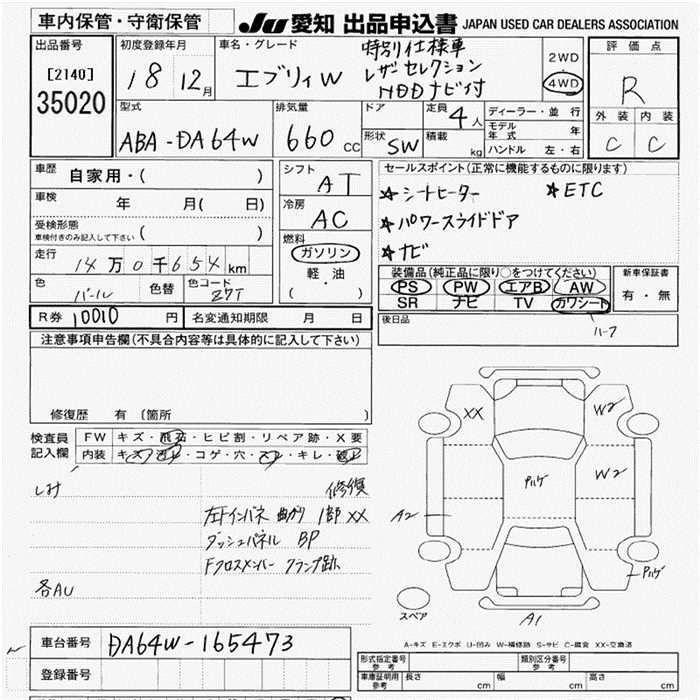 車内保管・守衛保管
JU 愛知 出品申込書 JAPAN USED CAR DEALERS ASSOCIATION
出品番号
[2140]
35020
初度登録年月
18 12月
車名・グレード
エブリィW
特別仕様車
レザーセレクション
HDDナビ付
2WD
4WD
評価点
R
外装 内装
C C
型式
ABA-DA64W
排気量
660 cc
ドア
形状
SW
定員
4人
積載
kg
ディーラー・並行
モデル年式 年
ハンドル 左・右
車歴
自家用・( )
車検
年 月( 日)
受検形態
車検付きのみ記入して下さい ( )
走行
14万0千654km
色
パール
色替
色コード
Z7T
シフト
AT
冷房
AC
燃料
ガソリン
軽・油
( )
セールスポイント(正常に機能するものに限ります)
☆シートヒーター ☆ETC
☆パワースライドドア
☆ナビ
装備品(純正品に限り○をつけてください)
PS PW エアB AW
SR ナビ TV カワシート
ハーフ
新車保証書
有・無
R券 10010 円
名変通知期限 月 日
後日品
注意事項申告欄(不具合内容等は具体的に記入して下さい)
修復歴 有 〔箇所 〕
検査員
記入欄
FW キズ・飛石・ヒビ割・リペア跡・X要
内装 キズ・汚れ・コゲ・穴・スレ・キレ・破れ
しみ
修復
左Fインパネ 曲がり 1部XX
ダッシュパネル BP
Fクロスメンバー クランプ跡
各AU
XX
W2
W2
A2
A1
スペア
A-キズ E-エクボ U-凹み W-補修跡 S-サビ C-腐食 XX-交換済
車台番号
DA64W-165473
登録番号
形式指定番号
参考
類別区分番号
参考
車庫証明用
参考
長さ cm
幅 cm
高さ cm